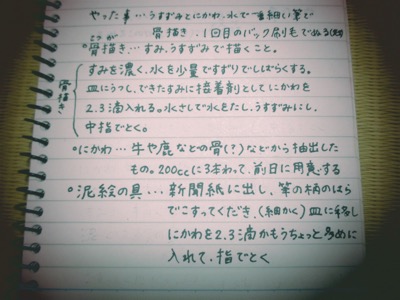 やった事…うすずみとにかわ、水で一番細い筆で
骨描き、1回目のバック刷毛でぬる
こつが
骨描き…すみ、うすずみで描くこと。
骨描き
すみを濃く、水を少量ですずりでしばらくする。
皿にうつし、できたすみに接着剤としてにかわを
2.3滴入れる。水さしで水をたし、うすずみにし、
中指でとく。
にかわ…牛や鹿などの骨(?)などから抽出した
もの。200ccに3本わって、前日に用意する
泥絵の具…新聞紙に出し、筆の柄のはら
でこすってくだき、(細かく)皿に移し
にかわを2.3滴かもうちょっと多めに
入れて、指でとく